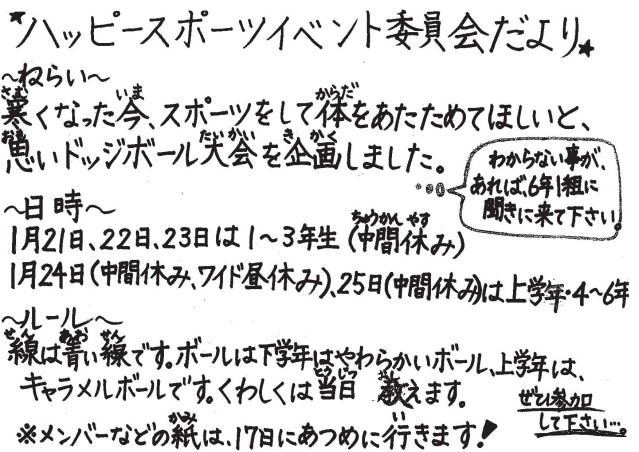 *ハッピースポーツイベント委員会だより*
~ねらい~
寒くなった今、スポーツをして体をあたためてほしいと、
思いドッジボール大会を企画しました。
わからない事が、
あれば、6年1組に
聞きに来て下さい。
~日時~
1月21日、22日、23日は1~3年生(中間休み)
1月24日(中間休み、ワイド昼休み)、25日(中間休み)は上学年・4~6年
~ルール~
線は青い線です。ボールは下学年はやわらかいボール、上学年は、
キャラメルボールです。くわしくは当日 教えます。
ぜひ参加
して下さい…。
※メンバーなどの紙は、17日にあつめに行きます!